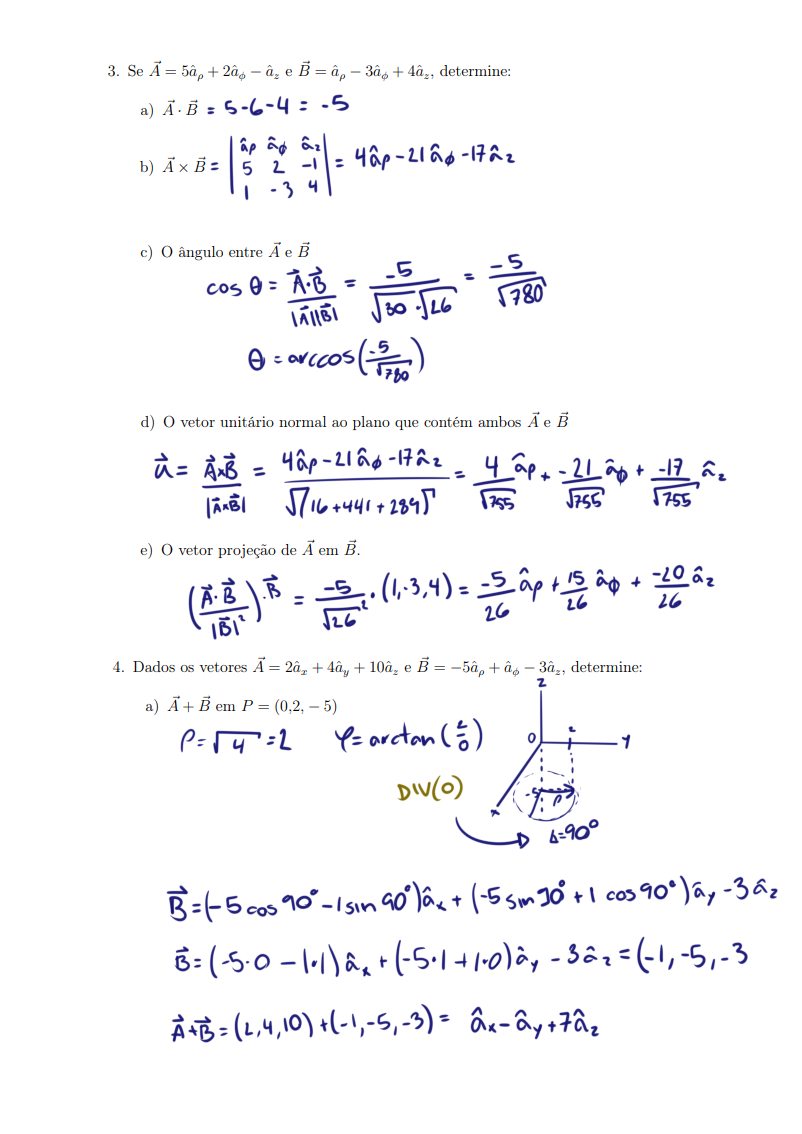 3. Se A⃗ = 5âρ + 2âϕ − âz e B⃗ = âρ − 3âϕ + 4âz, determine:
a) A⃗ · B⃗ = 5-6-4 = -5
b) A⃗ × B⃗ = | âρ âϕ âz | = 4âρ - 21âϕ - 17âz
5 2 -1
1 -3 4
c) O ângulo entre A⃗ e B⃗
cos θ = A⃗·B⃗ / |A⃗||B⃗| = -5 / √30 · √26 = -5 / √780
θ = arccos(-5/√780)
d) O vetor unitário normal ao plano que contém ambos A⃗ e B⃗
u⃗ = A⃗×B⃗ / |A⃗×B⃗| = 4âρ - 21âϕ - 17âz / √16+441+289 = 4/√755 âρ + -21/√755 âϕ + -17/√755 âz
e) O vetor projeção de A⃗ em B⃗.
(A⃗·B⃗ / |B⃗|²)·B⃗ = -5/√26² · (1,-3,4) = -5/26 âρ + 15/26 âϕ + -20/26 âz
4. Dados os vetores A⃗ = 2âx + 4ây + 10âz e B⃗ = −5âρ + âϕ − 3âz, determine:
a) A⃗ + B⃗ em P = (0,2, − 5)
ρ = √4 = 2 φ = arctan(2/0)
z
0 2 y
-5 ρ
x
DIV(0)
Δ=90°
B⃗ = (-5 cos 90° - 1 sin 90°)âx + (-5 sin 90° + 1 cos 90°)ây - 3âz
B⃗ = (-5·0 - 1·1)âx + (-5·1 + 1·0)ây - 3âz = (-1, -5, -3
A⃗+B⃗ = (2,4,10) + (-1,-5,-3) = âx - ây + 7âz